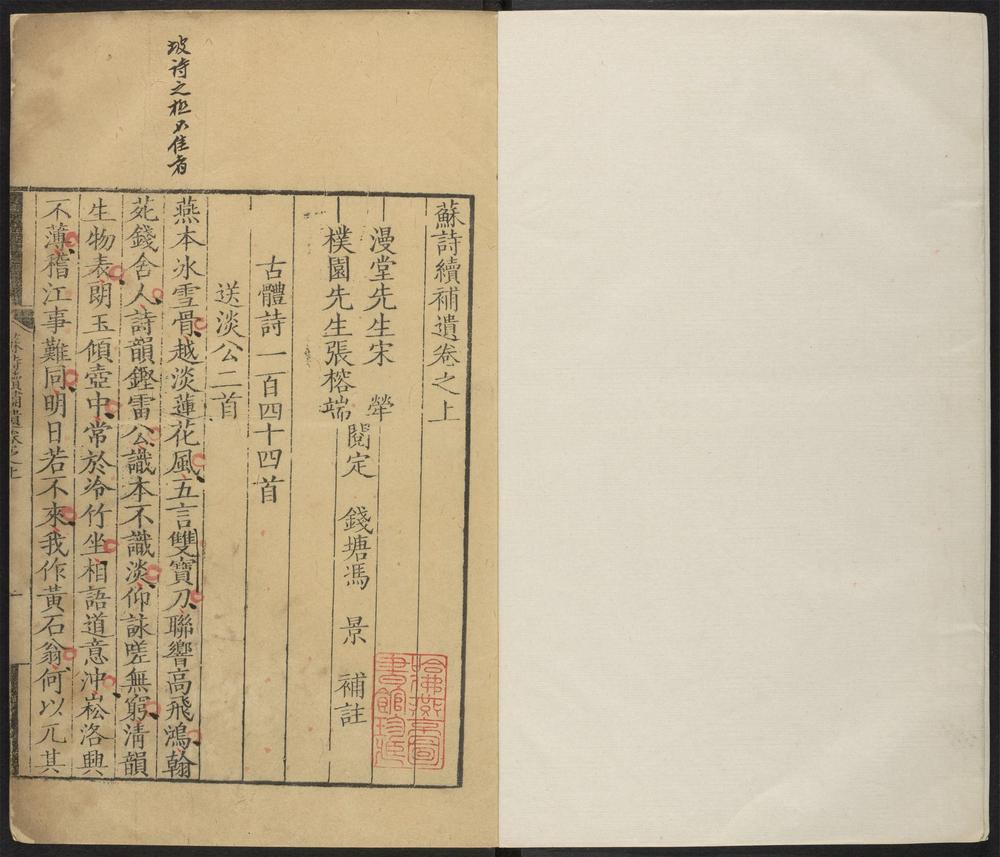 坡詩之極不佳者
蘇詩續補遺卷之上
漫堂先生宋 犖
樸園先生張榕端
閱定 錢塘馮 景 補註
古體詩一百四十四首
送淡公二首
燕本冰雪骨越淡蓮花風五言雙寶刀聯響高飛鴻翰
苑錢舍人詩韻鏗雷公識本不識淡仰詠嗟無窮清韻
生物表朗玉傾壺中常於冷竹坐相語道意沖崧洛興
不薄稽江事難同明日若不來我作黃石翁何以兀其
哈佛燕京圖
書館珍藏
蘇詩續補遺卷之上
一